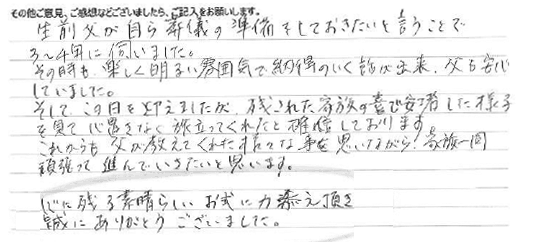 その他ご意見、ご感想などございましたら、ご記入をお願いします。
生前父が自ら葬儀の準備をしておきたいと言うことで
3〜4年に伺いました。
その時も、楽しく明るい雰囲気で納得のいく話が出来、父も安心
していました。
そして、この日を迎えましたが、残された家族の喜び安堵した様子
を見て心置きなく旅立ってくれたと確信しております。
これからも父が教えてくれた様々な事を思いながら、家族一同
頑張って進んでいきたいと思います。
心に残る素晴らしいお式に力添え頂き
誠にありがとうございました。